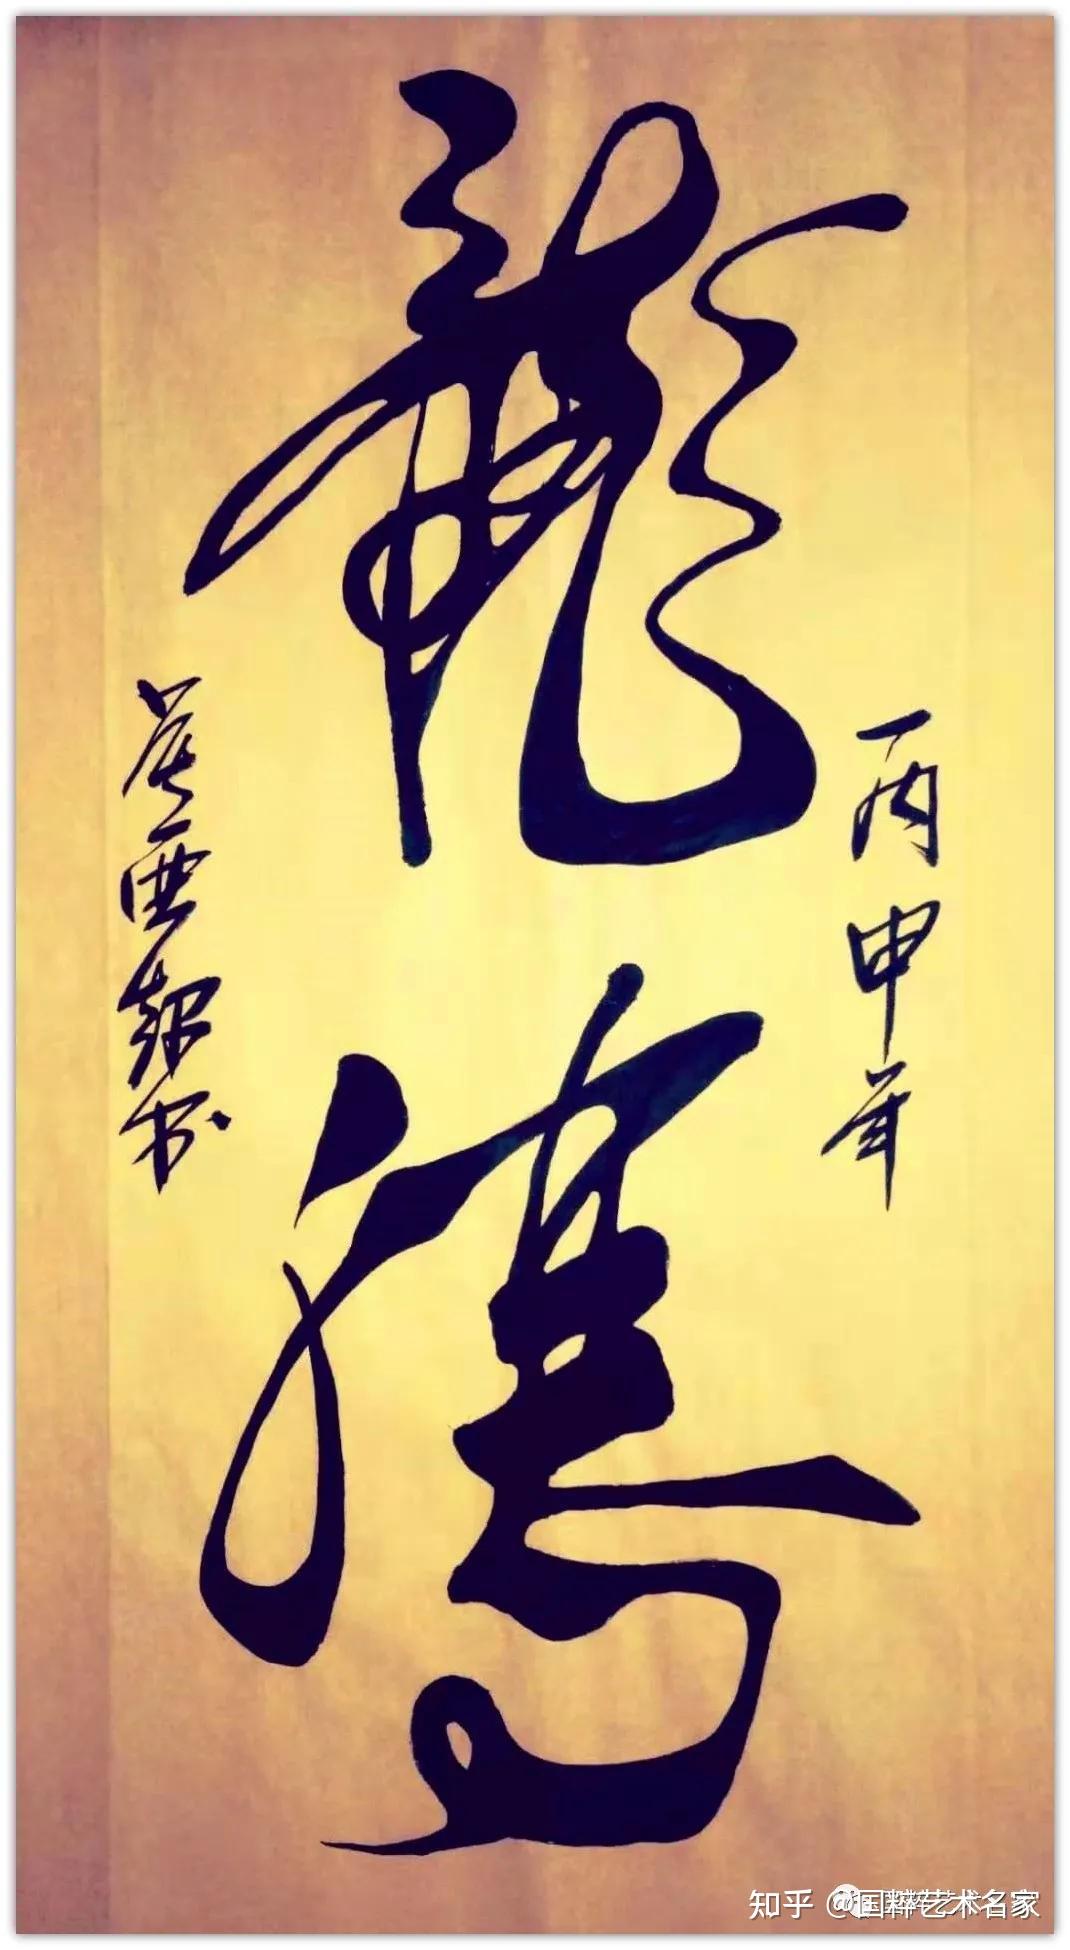 丙申年
龍騰
书
知乎 @国粹艺术名家